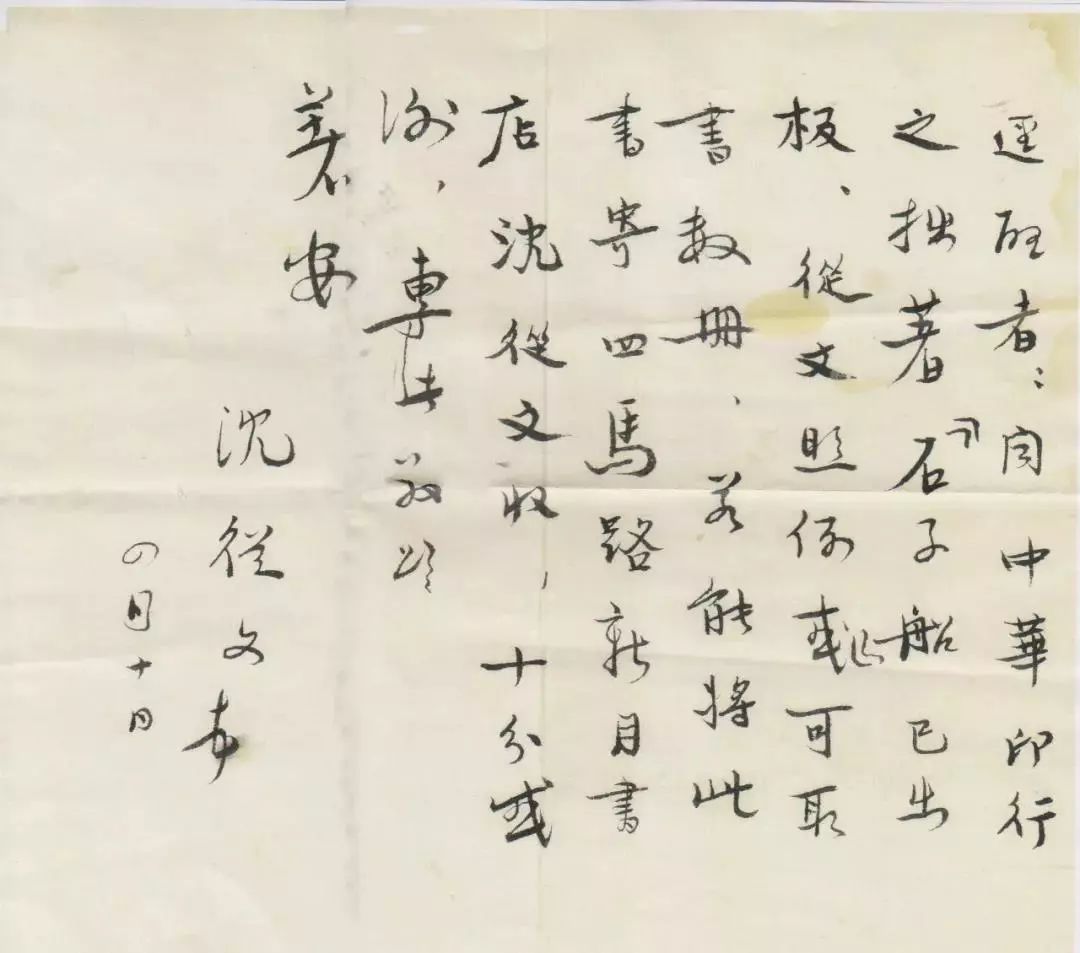 逕啟者：同中華印行
之拙著『石子船』已出
板、從文照例或可取
書數冊、若能將此
書寄四馬路新月書
店沈從文收，十分感
謝，專此敬頌
著安
沈從文
四月十日